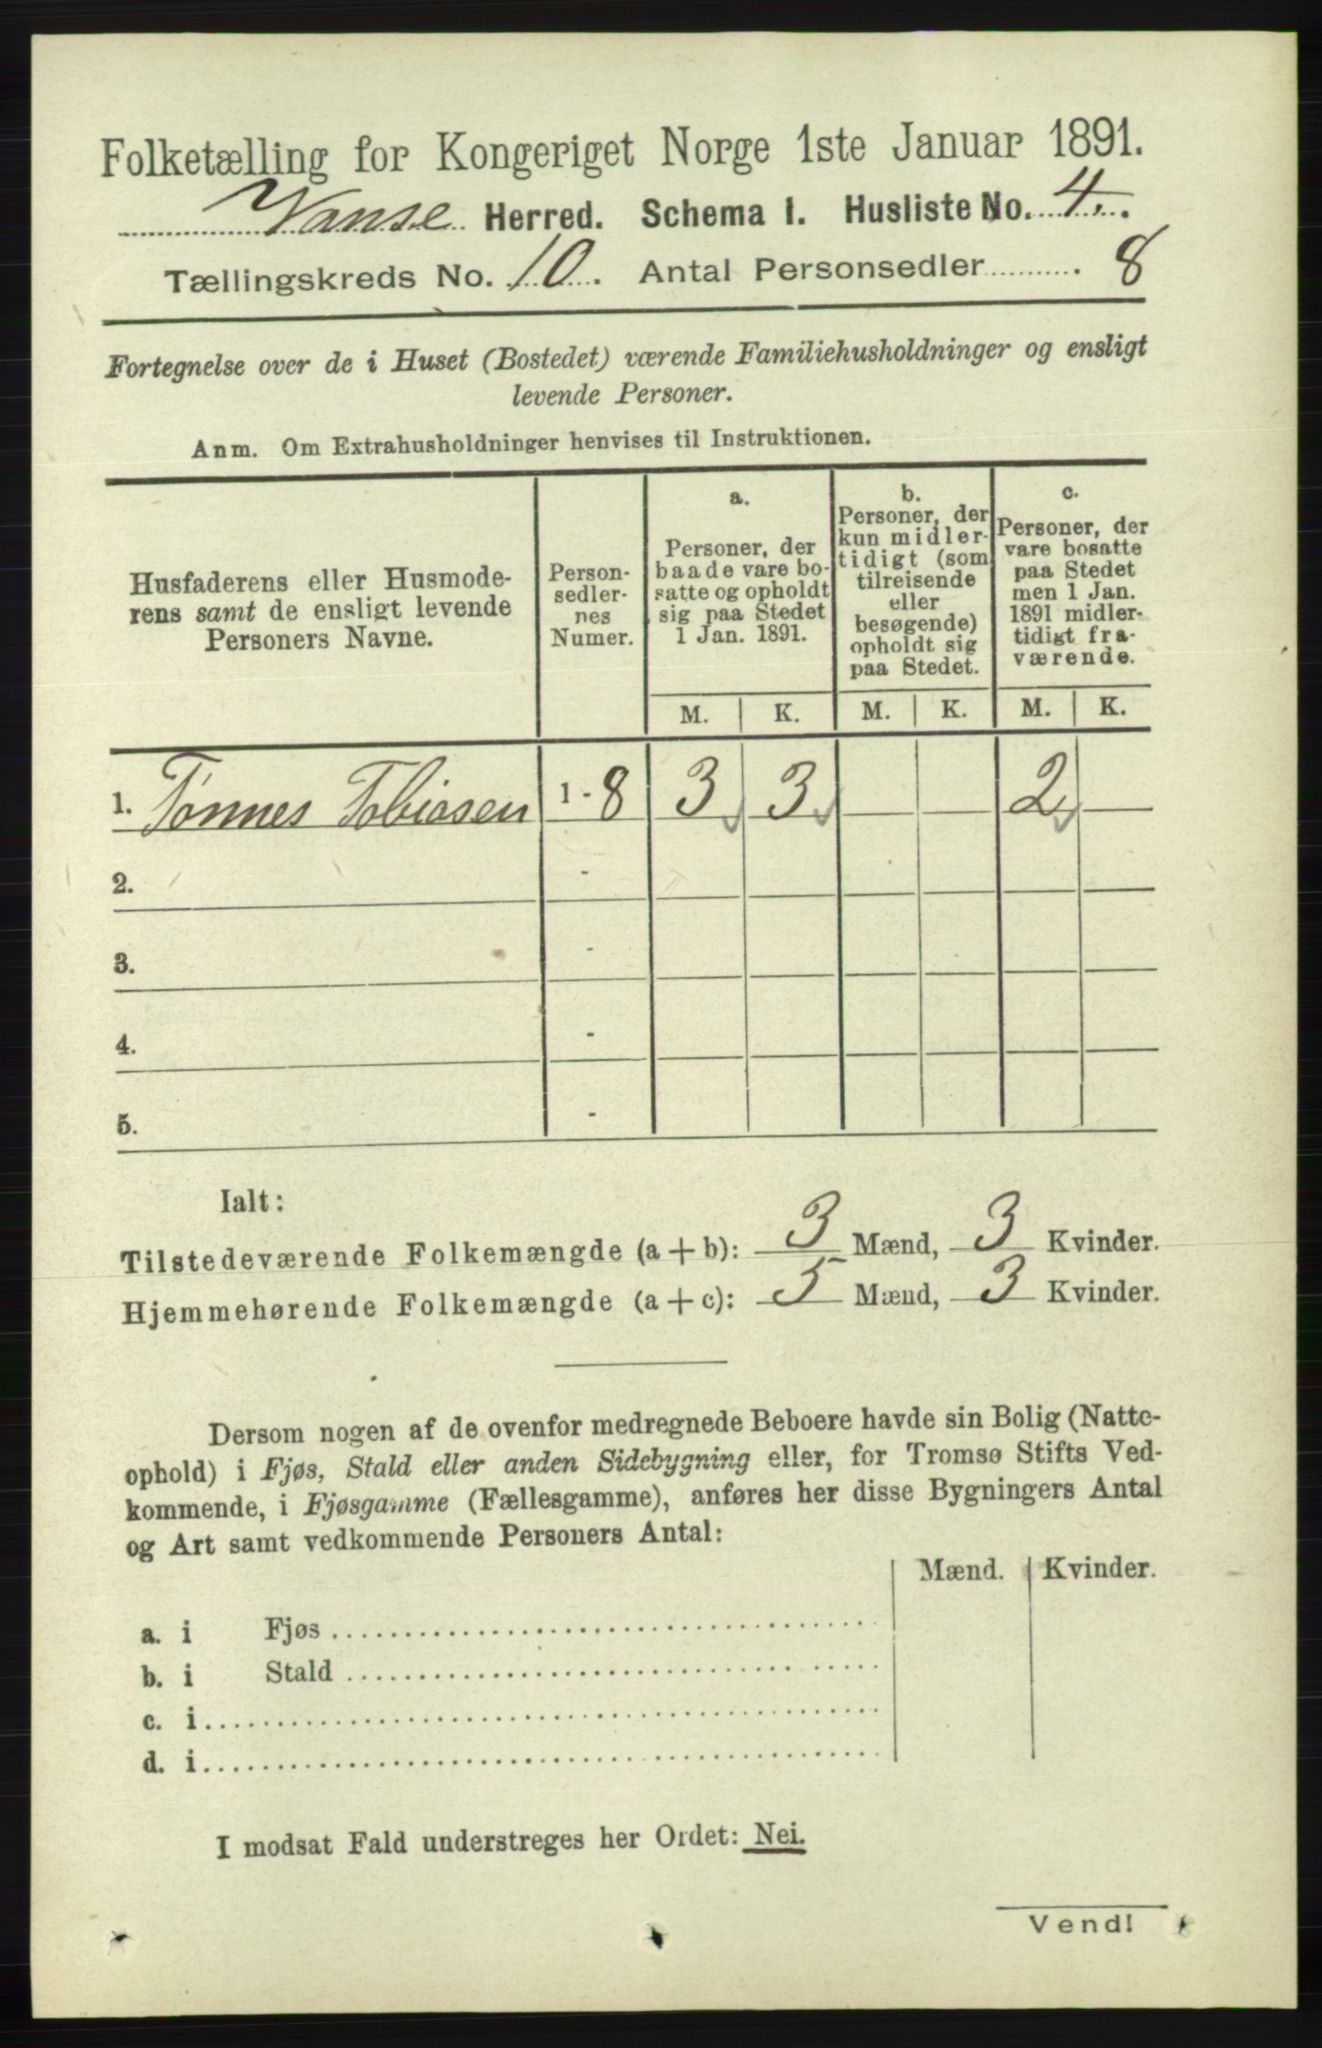 Folketælling for Kongeriget Norge 1ste Januar 1891.
Vanse Herred. Schema I. Husliste No. 4.
Tællingskreds No. 10. Antal Personsedler 8
Fortegnelse over de i Huset (Bostedet) værende Familiehusholdninger og ensligt
levende Personer.
Anm. Om Extrahusholdninger henvises til Instruktionen.
Husfaderens eller Husmode-
rens samt de ensligt levende
Personers Navne.
Person-
sedler-
nes
Numer.
a.
Personer, der
baade vare bo-
satte og opholdt
sig paa Stedet
1 Jan. 1891.
b.
Personer, der
kun midler-
tidigt (som
tilreisende
eller
besøgende)
opholdt sig
paa Stedet.
c.
Personer, der
vare bosatte
paa Stedet
men 1 Jan.
1891 midler-
tidigt fra-
værende.
M. K. M. K. M. K.
1. Tønnes Tobiasen 1 - 8 3 3 — — 2 —
2. -
3. -
4. -
5. -
Ialt:
Tilstedeværende Folkemængde (a + b): 3 Mænd, 3 Kvinder.
Hjemmehørende Folkemængde (a + c): 5 Mænd, 3 Kvinder.
Dersom nogen af de ovenfor medregnede Beboere havde sin Bolig (Natte-
ophold) i Fjøs, Stald eller anden Sidebygning eller, for Tromsø Stifts Ved-
kommende, i Fjøsgamme (Fællesgamme), anføres her disse Bygningers Antal
og Art samt vedkommende Personers Antal:
Mænd. Kvinder.
a. i Fjøs
b. i Stald
c. i
d. i
I modsat Fald understreges her Ordet: Nei.
Vend!